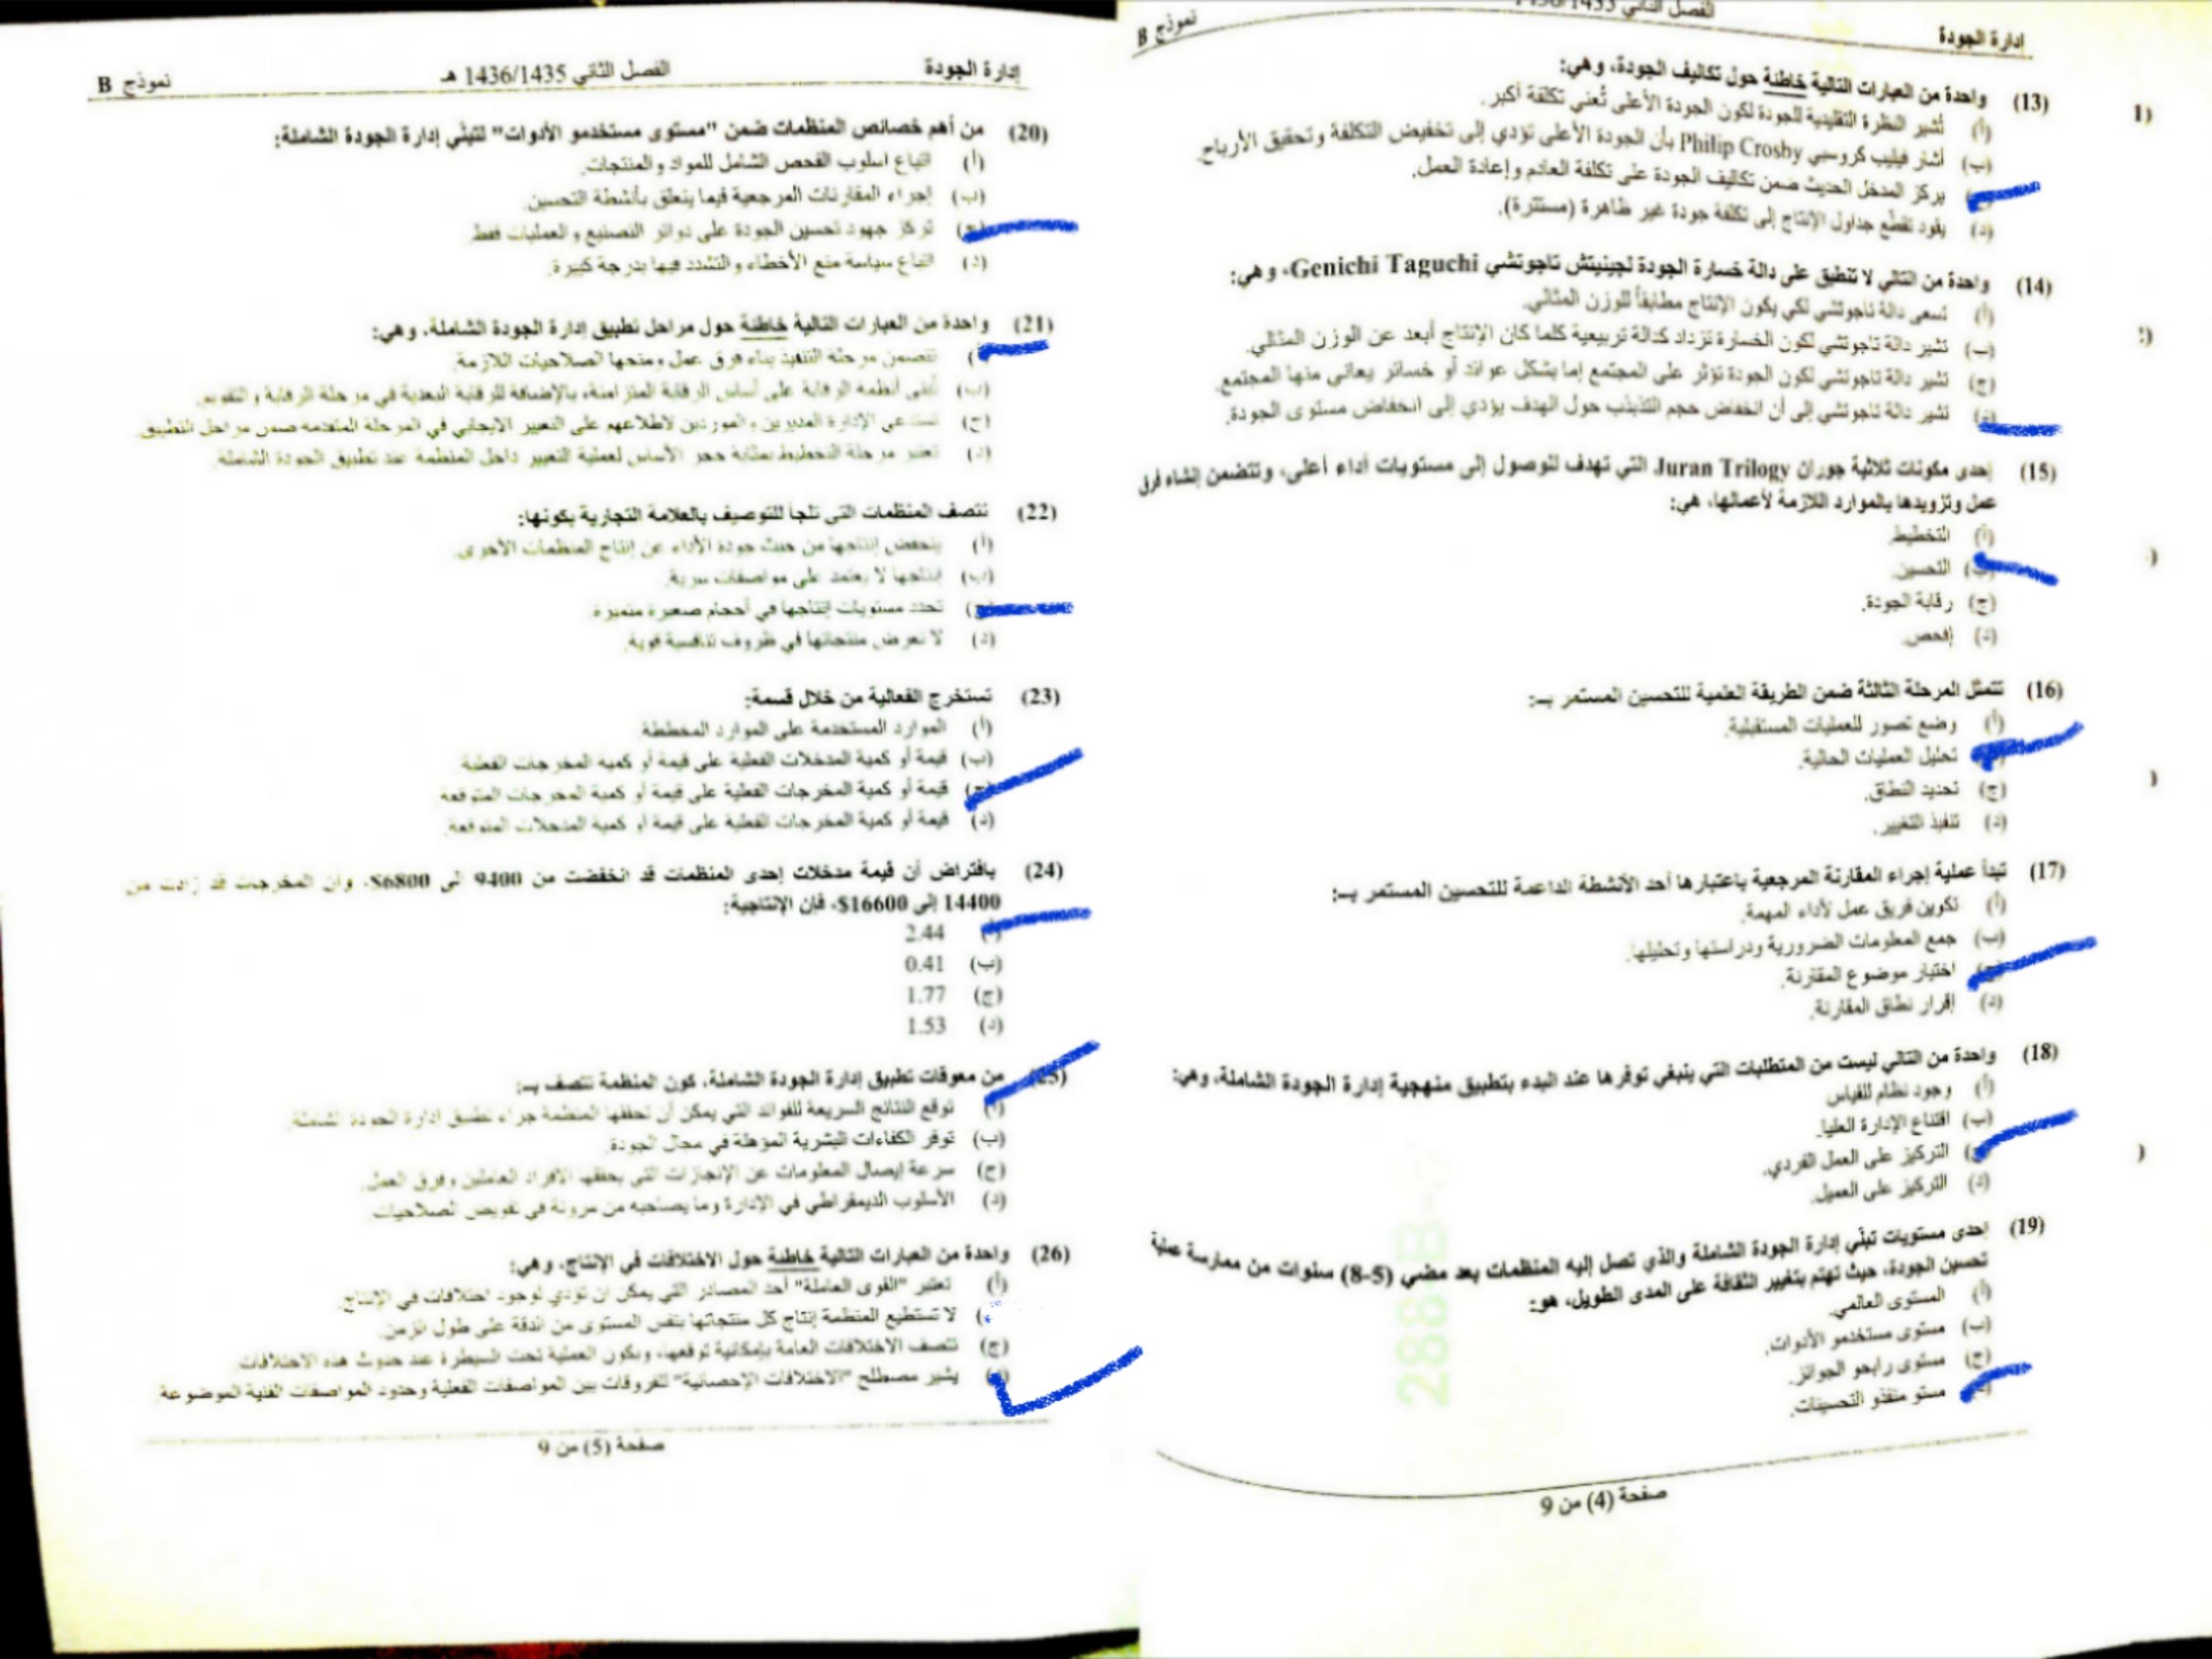 الفصل الثاني 1436/1435
إدارة الجودة
نموذج B
(13) واحدة من العبارات التالية خاطئة حول تكاليف الجودة، وهي:
(أ) تُشير النظرة التقليدية للجودة لكون الجودة الأعلى تُعني تكلفة أكبر.
(ب) أشار فيليب كروسبي Philip Crosby بأن الجودة الأعلى تؤدي إلى تخفيض التكلفة وتحقيق الأرباح.
يركز المدخل الحديث ضمن تكاليف الجودة على تكلفة العادم وإعادة العمل.
(د) يقود تقطّع جداول الإنتاج إلى تكلفة جودة غير ظاهرة (مستترة).
(14) واحدة من التالي لا تنطبق على دالة خسارة الجودة لجينيتش تاجوتشي Genichi Taguchi، وهي:
(أ) تسعى دالة تاجوتشي لكي يكون الإنتاج مطابقاً للوزن المثالي.
(ب) تشير دالة تاجوتشي لكون الخسارة تزداد كدالة تربيعية كلما كان الإنتاج أبعد عن الوزن المثالي.
(ج) تشير دالة تاجوتشي لكون الجودة تؤثر على المجتمع إما بشكل عوائد أو خسائر يعاني منها المجتمع.
(د) تشير دالة تاجوتشي إلى أن انخفاض حجم التذبذب حول الهدف يؤدي إلى انخفاض مستوى الجودة.
(15) إحدى مكونات ثلاثية جوران Juran Trilogy التي تهدف للوصول إلى مستويات أداء أعلى، وتتضمن إنشاء فرق
عمل وتزويدها بالموارد اللازمة لأعمالها، هي:
(أ) التخطيط.
(ب) التحسين.
(ج) رقابة الجودة.
(د) إفحص.
(16) تتمثل المرحلة الثالثة ضمن الطريقة العلمية للتحسين المستمر بـ:
(أ) وضع تصور للعمليات المستقبلية.
تحليل العمليات الحالية.
(ج) تحديد النطاق.
(د) تنفيذ التغيير.
(17) تبدأ عملية إجراء المقارنة المرجعية باعتبارها أحد الأنشطة الداعمة للتحسين المستمر بـ:
(أ) تكوين فريق عمل لأداء المهمة.
(ب) جمع المعلومات الضرورية ودراستها وتحليلها.
اختيار موضوع المقارنة.
(د) إقرار نطاق المقارنة.
(18) واحدة من التالي ليست من المتطلبات التي ينبغي توفرها عند البدء بتطبيق منهجية إدارة الجودة الشاملة، وهي:
(أ) وجود نظام للقياس
(ب) اقتناع الإدارة العليا.
التركيز على العمل الفردي.
(د) التركيز على العميل.
(19) إحدى مستويات تبنّي إدارة الجودة الشاملة والذي تصل إليه المنظمات بعد مضي (5-8) سنوات من ممارسة عملية
تحسين الجودة، حيث تهتم بتغيير الثقافة على المدى الطويل، هو:
(أ) المستوى العالمي.
(ب) مستوى مستخدمو الأدوات.
(ج) مستوى رابحو الجوائز.
مستو منفذو التحسينات.
288B
صفحة (4) من 9
إدارة الجودة
الفصل الثاني 1436/1435 هـ
نموذج B
(20) من أهم خصائص المنظمات ضمن "مستوى مستخدمو الأدوات" لتبنّي إدارة الجودة الشاملة:
(أ) اتباع اسلوب الفحص الشامل للمواد والمنتجات.
(ب) إجراء المقارنات المرجعية فيما يتعلق بأنشطة التحسين.
(ج) تركز جهود تحسين الجودة على دوائر التصنيع والعمليات فقط.
(د) اتباع سياسة منع الأخطاء والتشدد فيها بدرجة كبيرة.
(21) واحدة من العبارات التالية خاطئة حول مراحل تطبيق إدارة الجودة الشاملة، وهي:
تتضمن مرحلة التنفيذ بناء فرق عمل ومنحها الصلاحيات اللازمة.
(ب) تُبنى أنظمة الرقابة على أساس الرقابة المتزامنة، بالإضافة للرقابة البعدية في مرحلة الرقابة والتقويم.
(ج) تستدعي الإدارة المديرين والموردين لاطلاعهم على التغيير الايجابي في المرحلة المتقدمة ضمن مراحل التطبيق.
(د) تعتبر مرحلة التخطيط بمثابة حجر الأساس لعملية التغيير داخل المنظمة عند تطبيق الجودة الشاملة.
(22) تتصف المنظمات التي تلجأ للتوصيف بالعلامة التجارية بكونها:
(أ) ينخفض إنتاجها من حيث جودة الأداء عن إنتاج المنظمات الأخرى.
(ب) إنتاجها لا يعتمد على مواصفات سرية.
تحدد مستويات إنتاجها في أحجام صغيرة متميزة.
(د) لا تعرض منتجاتها في ظروف تنافسية قوية.
(23) تستخرج الفعالية من خلال قسمة:
(أ) الموارد المستخدمة على الموارد المخططة.
(ب) قيمة أو كمية المدخلات الفعلية على قيمة أو كمية المخرجات الفعلية.
(ج) قيمة أو كمية المخرجات الفعلية على قيمة أو كمية المخرجات المتوقعة.
(د) قيمة أو كمية المخرجات الفعلية على قيمة أو كمية المدخلات المتوقعة.
(24) بافتراض أن قيمة مدخلات إحدى المنظمات قد انخفضت من 9400 الى 6800$، وأن المخرجات قد زادت من
14400 إلى 16600$، فإن الإنتاجية:
2.44
(ب) 0.41
(ج) 1.77
(د) 1.53
(25) من معوقات تطبيق إدارة الجودة الشاملة، كون المنظمة تتصف بـ:
(أ) توقع النتائج السريعة للفوائد التي يمكن أن تحققها المنظمة جراء تطبيق إدارة الجودة الشاملة.
(ب) توفر الكفاءات البشرية المؤهلة في مجال الجودة.
(ج) سرعة إيصال المعلومات عن الإنجازات التي يحققها الافراد العاملين وفرق العمل.
(د) الأسلوب الديمقراطي في الإدارة وما يصاحبه من مرونة في تفويض الصلاحيات.
(26) واحدة من العبارات التالية خاطئة حول الاختلافات في الإنتاج، وهي:
(أ) تعتبر "القوى العاملة" أحد المصادر التي يمكن ان تؤدي لوجود اختلافات في الإنتاج.
لا تستطيع المنظمة إنتاج كل منتجاتها بنفس المستوى من الدقة على طول الزمن.
(ج) تتصف الاختلافات العامة بإمكانية توقعها، ويكون العملية تحت السيطرة عند حدوث هذه الاختلافات.
يشير مصطلح "الاختلافات الإحصائية" للفروقات بين المواصفات الفعلية وحدود المواصفات الفنية الموضوعة.
صفحة (5) من 9